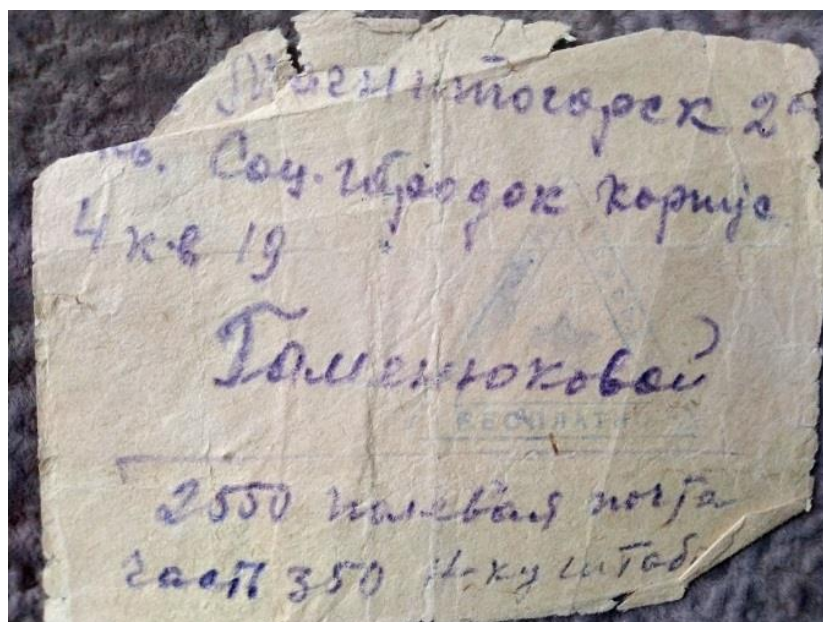 Магнитогорск 2
Соц. городок корпус
4 кв 19
Гаменюковой
БЕСПЛАТН
2550 полевая почта
част 350 Н-ку штаба